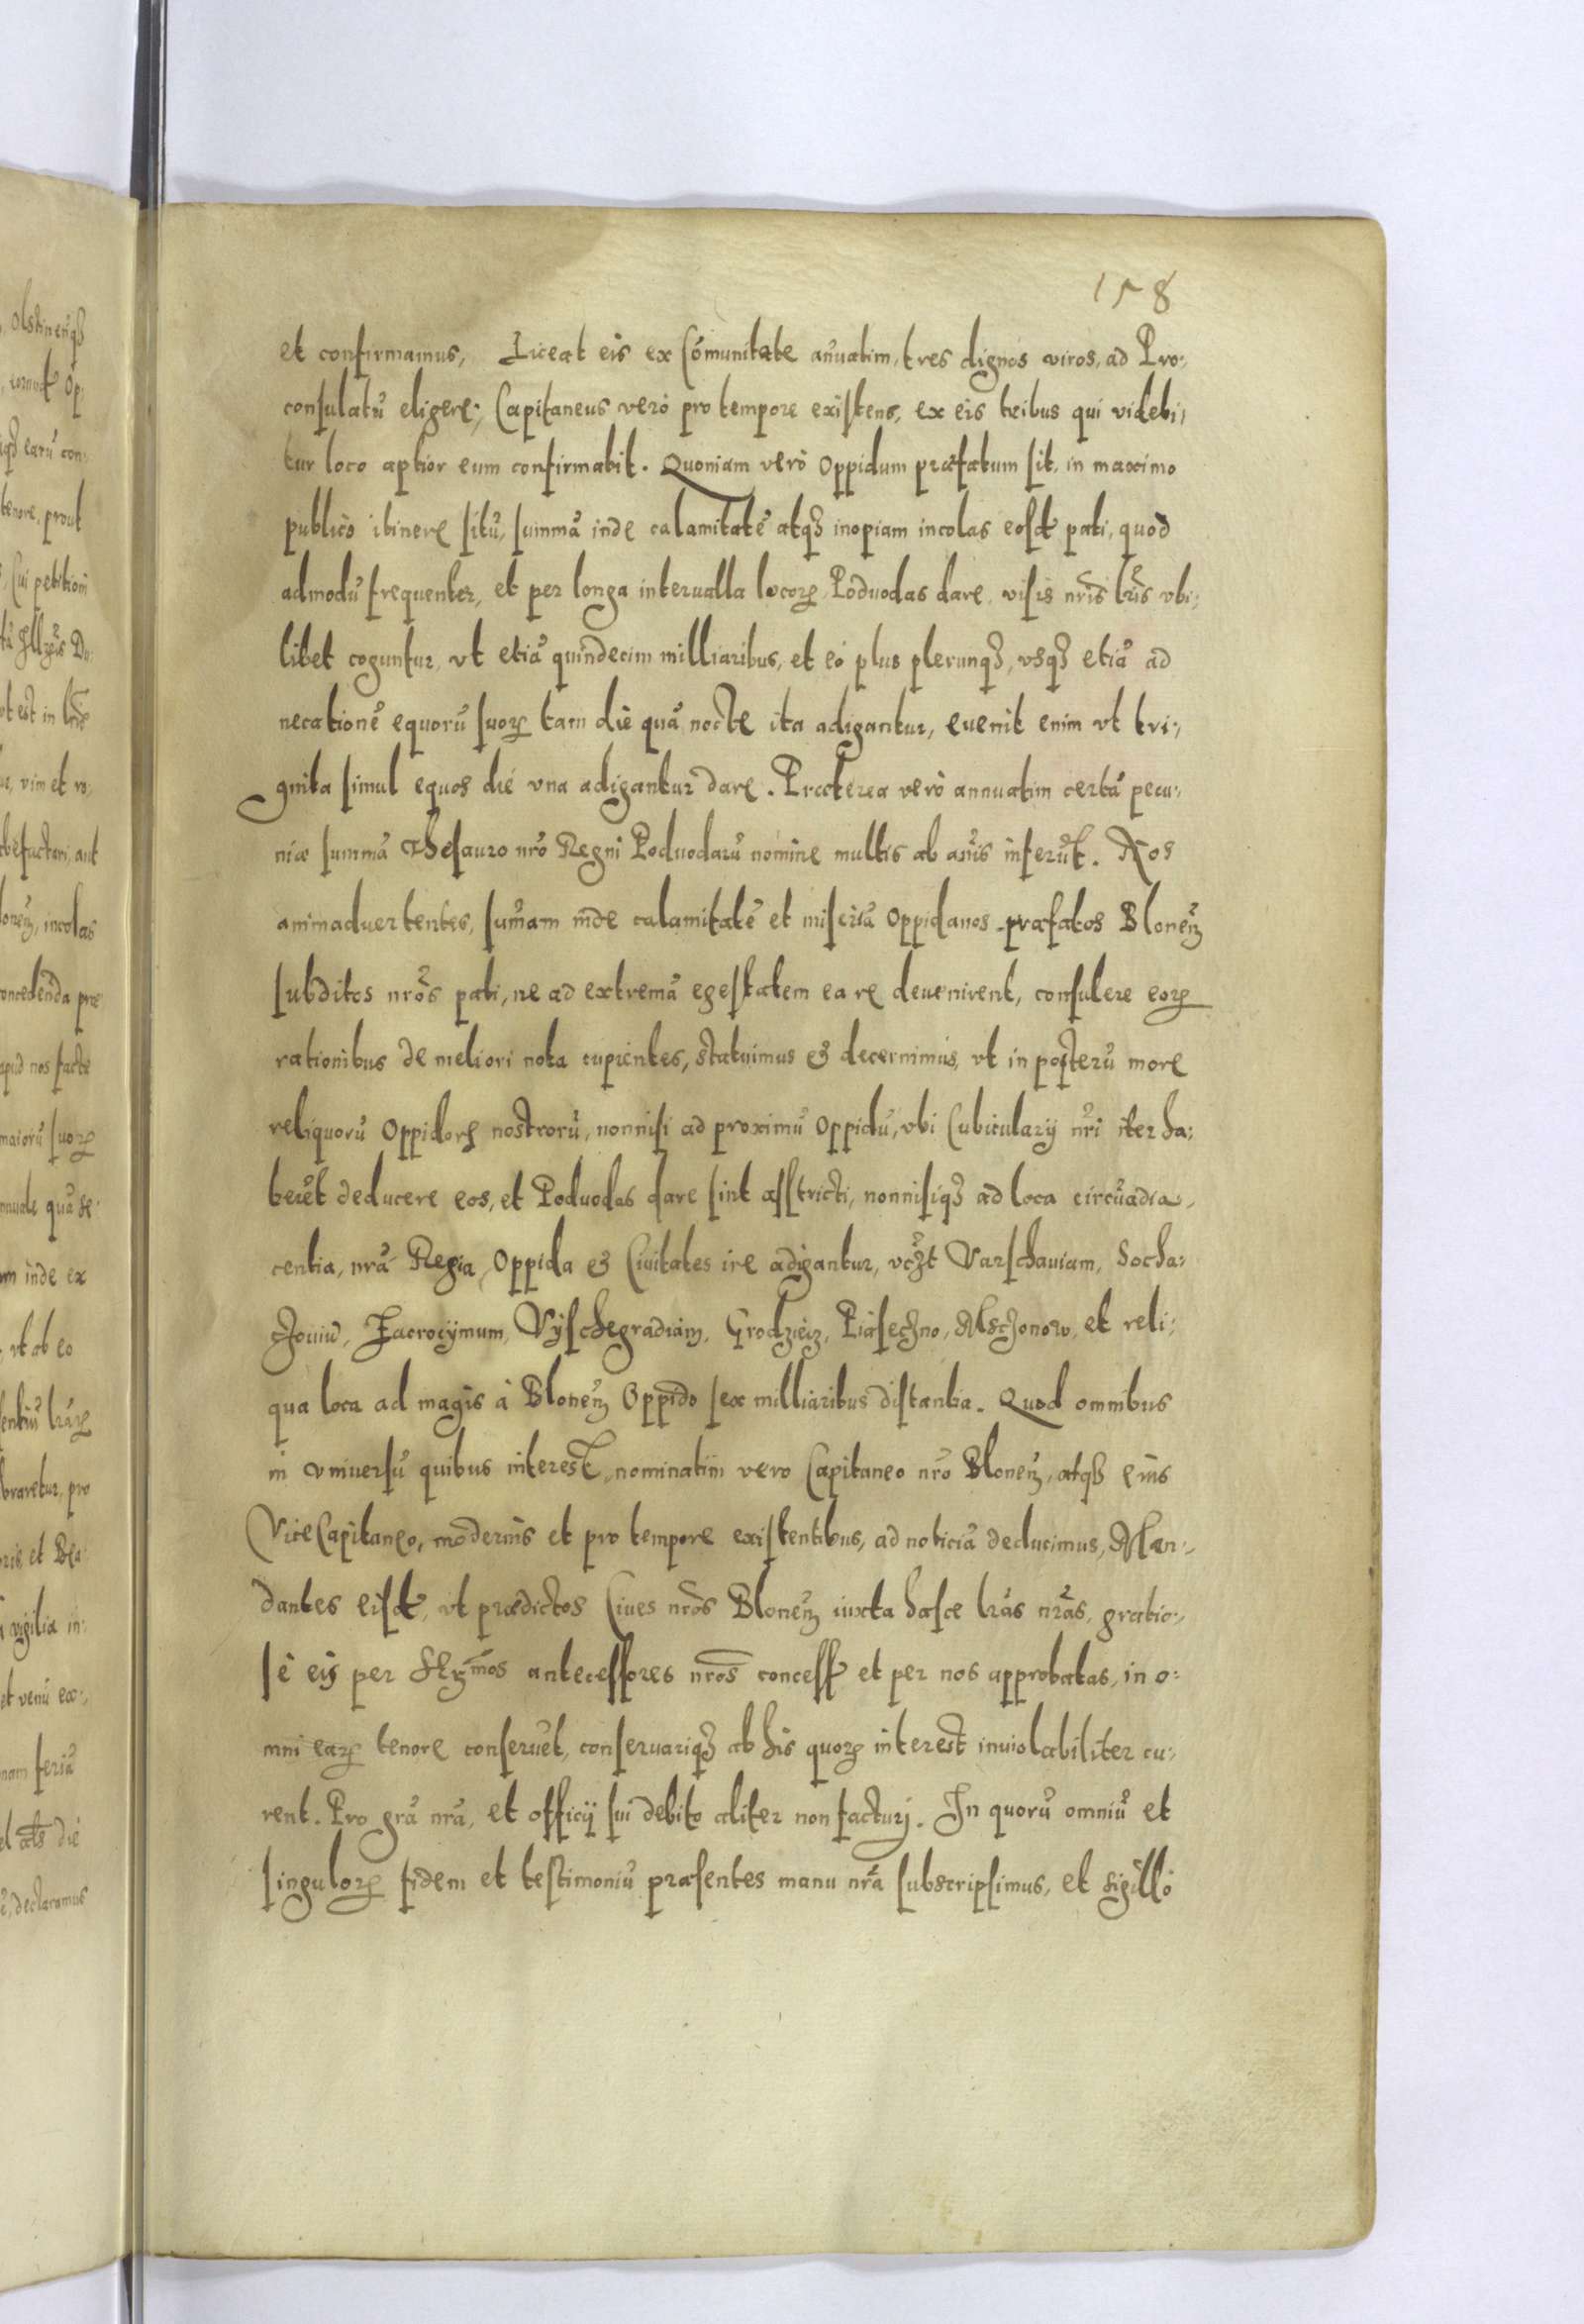 158
et confirmamus, Liceat eis ex Cōmunitate añuatim, tres dignos viros, ad Pro:
consulatū eligere; Capitaneus verò pro tempore existens, ex eis tribus qui videbi,
tur loco aptior eum confirmabit. Quoniam verò Oppidum præfatum sit, in maximo
publico itinere sitū, summā inde calamitatē atqȝ inopiam incolas eosd pati, quod
admodū frequenter, et per longa interualla locorꝝ Podwodas dare visis nr̄is lr̄is vbi:
libet coguntur, vt etiā quindecim milliaribus, et eò plus plerunqȝ, vsqȝ etiā ad
necationē equorū suorꝝ tam die quā nocte ita adigantur, euenit enim vt tri:
gnita simul equos die vna adigantur dare. Præterea verò annuatim certā pecu:
niæ summā Thesauro nr̄o Regni Podwodarū nomine multis ab añis inferūt. Nos
animaduertentes, sum̄am inde calamitatē et miseriā Oppidanos præfatos Blonen̄
subditos nr̄os pati, ne ad extremā egestatem ea re deuenirent, consulere eorꝝ
rationibus de meliori nota cupientes, statuimus & decernimus, vt in posterū more
reliquorū Oppidorꝝ nostrorū, nonnisi ad proximū Oppidū, vbi Cubicularij nr̄i iter ha:
berēt deducere eos, et Podwodas dare sint asstricti, nonnisiqȝ ad loca circūadia,
centia, nr̄ā Regia, Oppida & Ciuitates ire adigantur, vcȝt Varschauiam, Socha:
czouiū, Zacrocijmum, Vÿschegradiam, Grodzieiz, Piaseczno, Msczonow, et reli:
qua loca ad magis à Blonen̄ Oppido sex milliaribus distantia. Quod omnibus
in vniuersū quibus interest, nominatim vero Capitaneo nr̄o Blonen̄, atqȝ eius
ViceCapitaneo, modernis et pro tempore existentibus, ad noticiā deducimus, Man:
dantes eisd, vt prædictos Ciues nr̄os Blonen̄ iuxta hasce lr̄as nr̄as, gratio:
sè eis per Serᵐᵒˢ antecessores nr̄os concess et per nos approbatas, in o:
mni earꝝ tenore conseruēt, conseruariqȝ ab his quorꝝ interest inuiolabiliter cu:
rent. Pro gr̄ā nr̄ā, et officij sui debito aliter non facturj. In quorū omniū et
singulorꝝ fidem et testimoniū præsentes manu nr̄a subscripsimus, et sigillo